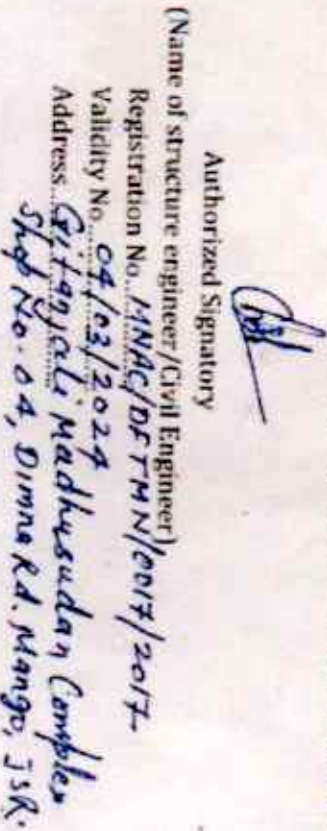 Authorized Signatory
(Name of structure engineer/Civil Engineer)
Registration No..MNAC/DFTMN/0017/2017
Validity No...04/03/2024
Address...Gitanjali Madhusudan Complex
Shop No-04, Dimna Rd. Mango, JSR.